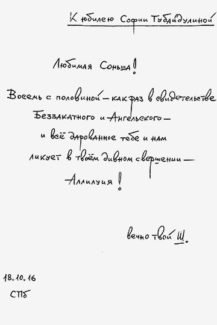 К юбилею Софии Губайдулиной
Любимая Соньша!
Восемь с половиной – как раз в свидетельстве
Беззакатного и Ангельского –
и всё дарованное тебе и нам
ликует в твоём дивном свершении –
Аллилуия!
вечно твой Щ.
18.10.16
СПб